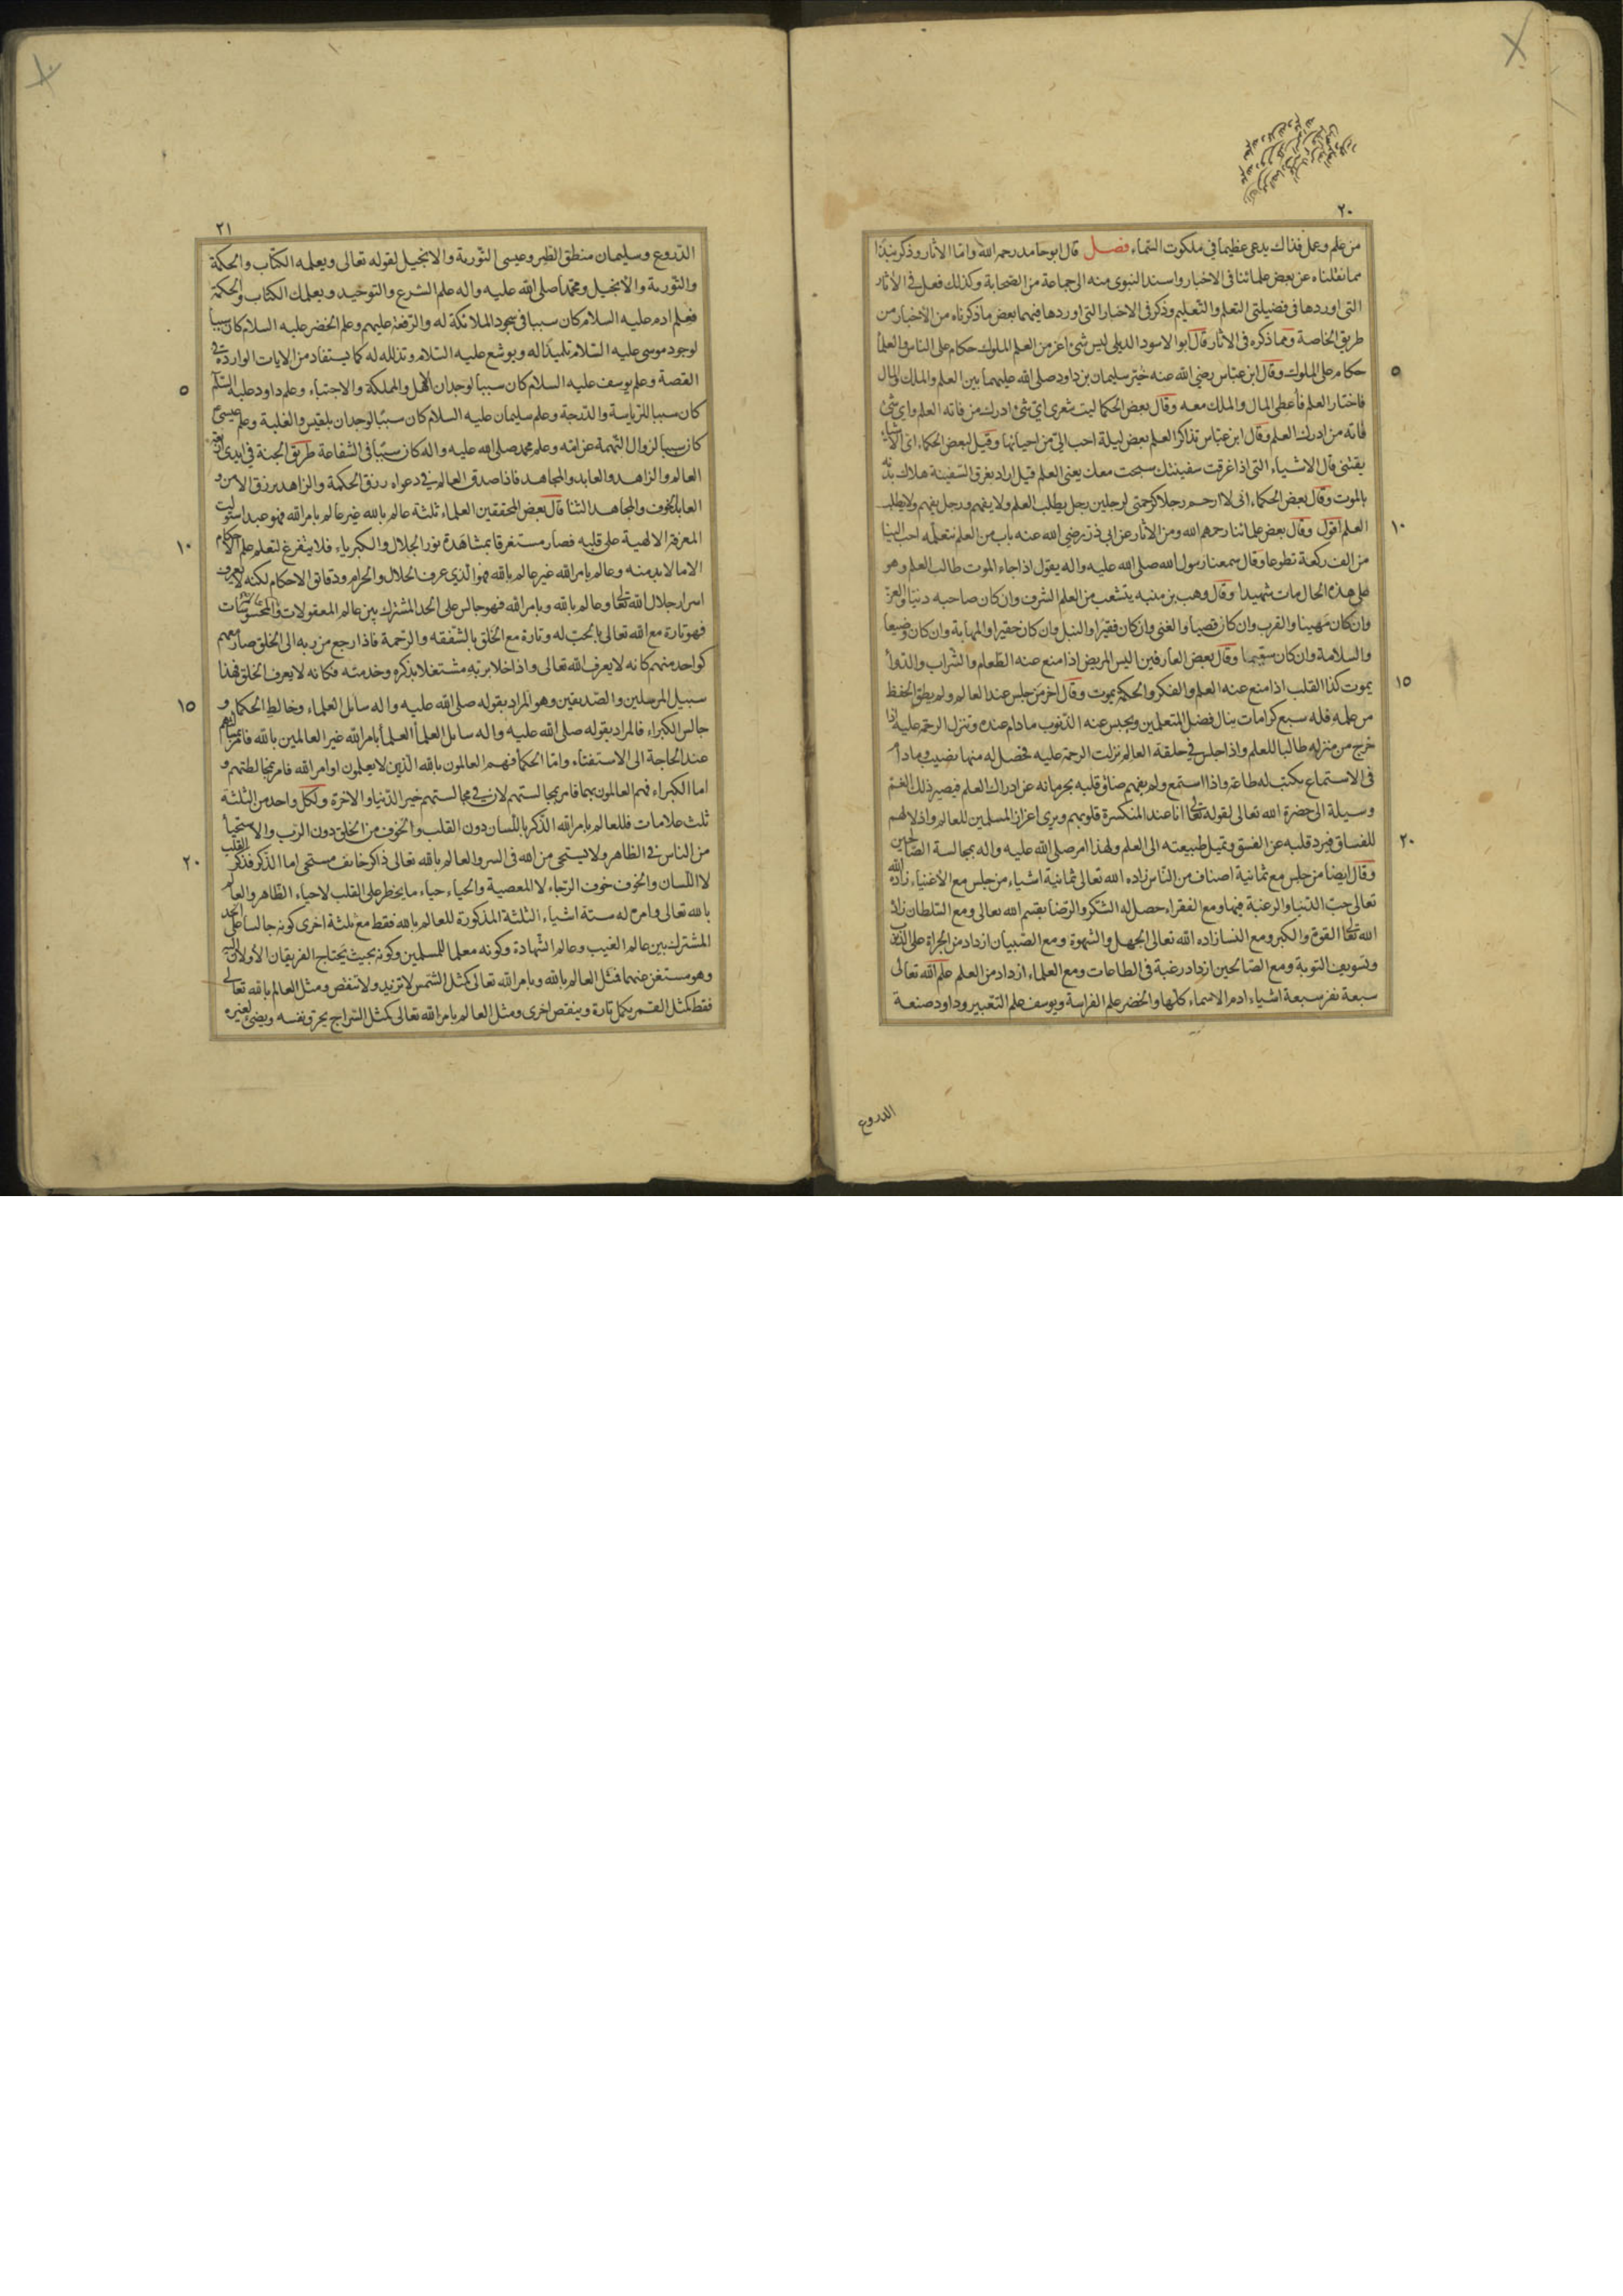 ٢٠
من علم وعمل فذاك يدعى عظيما في ملكوت السماء فصل قال ابو حامد رحمه الله واما الاثار وذكر نبذا
مما نقلناه عن بعض علمائنا في الاخبار واسند النبوى منه الى جماعة من الصحابة وكذلك فعل في الاثار
التى اوردها في فضيلتى التعلم والتعليم وذكر في الاخبار التى اوردها فيهما بعض ما ذكرناه من الاخبار من
طريق الخاصة ومما ذكره في الاثار قال ابو الاسود الديلى ليس شئ اعز من العلم الملوك حكام على الناس والعلماء
حكام على الملوك وقال ابن عباس رضي الله عنه خير سليمان بن داود صلى الله عليهما بين العلم والملك والمال
٥
فاختار العلم فاعطى المال والملك معه وقال بعض الحكما ليت شعرى اى شئ ادرك من فاته العلم واى شئ
فاته من ادرك العلم وقال ابن عباس تذاكر العلم بعض ليلة احب الى من احيائها وقيل لبعض الحكماء اى الاشياء
يقتنى قال الاشياء التى اذا غرقت سفينتك سبحت معك يعنى العلم قيل اراد بغرق السفينة هلاك بدنه
بالموت وقال بعض الحكماء انى لا ارحم رجلا كرحمتى لرجلين رجل يطلب العلم ولا يفهم ورجل يفهم ولا يطلب
العلم اقول وقال بعض علمائنا رحمهم الله ومن الاثار عن ابى ذر رضى الله عنه باب من العلم نتعلمه احب الينا
١٠
من الف ركعة تطوعا وقال سمعنا رسول الله صلى الله عليه واله يقول اذا جاء الموت طالب العلم وهو
على هذه الحال مات شهيدا وقال وهب بن منبه يتشعب من العلم الشرف وان كان صاحبه دنيا والعز
وان كان مهينا والقرب وان كان قصيا والغنى وان كان فقيرا والنبل وان كان حقيرا والمهابة وان كان وضيعا
والسلامة وان كان سقيما وقال بعض العارفين اليس المريض اذا منع عنه الطعام والشراب والدواء
يموت كذا القلب اذا منع عنه العلم والفكر والحكمة يموت وقال اخر من جلس عند العالم ولم يطق الحفظ
١٥
من علمه فله سبع كرامات ينال فضل المتعلمين ويحبس عنه الذنوب مادام عنده وتنزل الرحمة عليه اذا
خرج من منزله طالبا للعلم واذا جلس في حلقة العالم نزلت الرحمة عليه فحصل له منها نصيب ومادام
فى الاستماع يكتب له طاعة واذا استمع ولم يفهم ضاق قلبه بحرمانه عن ادراك العلم فيصير ذلك الغم
وسيلة الى حضرة الله تعالى لقوله تعالى انا عند المنكسرة قلوبهم ويرى اعزاز المسلمين للعالم واذلالهم
للفساق فيرد قلبه عن الفسق ويميل طبيعته الى العلم ولهذا امر صلى الله عليه واله بمجالسة الصالحين
٢٠
وقال ايضا من جلس مع ثمانية اصناف من الناس زاده الله تعالى ثمانية اشياء من جلس مع الاغنياء زاده الله
تعالى حب الدنيا والرغبة فيها ومع الفقراء حصل له الشكر والرضا بقسم الله تعالى ومع السلطان زاد
الله تعالى القوة والكبر ومع النسا زاده الله تعالى الجهل والشهوة ومع الصبيان ازداد من الجراة على الذنوب
وتسويف التوبة ومع الصالحين ازداد رغبة في الطاعات ومع العلماء ازداد من العلم علم الله تعالى
سبعة نفر سبعة اشياء ادم الاسماء كلها والخضر علم الفراسة ويوسف علم التعبير وداود صنعة
الدروع
٢١
الدروع وسليمان منطق الطير وعيسى التورية والانجيل لقوله تعالى ويعلمه الكتاب والحكمة
والتورية والانجيل ومحمد صلى الله عليه واله علم الشرع والتوحيد ويعلمك الكتاب والحكمة
فعلم ادم عليه السلام كان سببا في سجود الملائكة له والرفعة عليهم وعلم الخضر عليه السلام كان سببا
لوجود موسى عليه السلام تلميذا له ويوشع عليه السلام وتذلله له كما يستفاد من الايات الواردة في
القصة وعلم يوسف عليه السلام كان سببا لوجدان الاهل والمملكة والاجتباء وعلم داود عليه السلم
٥
كان سببا للرياسة والدرجة وعلم سليمان عليه السلام كان سببا لوجدان بلقيس والغلبة وعلم عيسى ع
كان سببا لزوال التهمة عن امه وعلم محمد صلى الله عليه واله كان سببا في الشفاعة طريق الجنة في ايدى اربعة
العالم والزاهد والعابد والمجاهد فاذا صدق العالم في دعواه رزق الحكمة والزاهد يرزق الامن و
العابد الخوف والمجاهد الثنا قال بعض المحققين العلماء ثلثة عالم بالله غير عالم بامر الله فهو عبد استولت
المعرفة الالهية على قلبه فصار مستغرقا بمشاهدة نور الجلال والكبرياء فلا يتفرغ لتعلم علم الاحكام
١٠
الا ما لابد منه وعالم بامر الله غير عالم بالله فهو الذي عرف الحلال والحرام ودقائق الاحكام لكنه لا يعرف
اسرار جلال الله تعالى وعالم بالله وبامر الله فهو جالس على الحد المشترك بين عالم المعقولات والمحسوسات
فهو تارة مع الله تعالى بالحب له وتارة مع الخلق بالشفقه والرحمة فاذا رجع من ربه الى الخلق صار معهم
كواحد منهم كانه لا يعرف الله تعالى واذا خلا بربه مشتغلا بذكره وخدمته فكانه لا يعرف الخلق فهذا
سبيل المرسلين والصديقين وهو المراد بقوله صلى الله عليه واله سائل العلماء وخالط الحكماء و
١٥
جالس الكبراء فالمراد بقوله صلى الله عليه واله سايل العلماء العلماء بامر الله غير العالمين بالله فامر بسؤالهم
عند الحاجة الى الاستفتاء واما الحكماء فهم العالمون بالله الذين لا يعلمون اوامر الله فامر بمخالطتهم و
اما الكبراء فهم العالمون بهما فامر بمجالستهم لان في مجالستهم خير الدنيا والاخرة ولكل واحد من الثلثة
ثلث علامات فللعالم بامر الله الذكر باللسان دون القلب والخوف من الخلق دون الرب والاستحياء
من الناس في الظاهر ولا يستحي من الله في السر والعالم بالله تعالى ذاكر خائف مستحى اما الذكر فذكر القلب
٢٠
لا اللسان والخوف خوف الرجاء لا المعصية والحياء حياء ما يخطر على القلب لا حياء الظاهر والعالم
بالله تعالى وامره له ستة اشياء الثلثة المذكورة للعالم بالله فقط مع ثلثة اخرى كونه جالسا على الحد
المشترك بين عالم الغيب وعالم الشهادة وكونه معلما للمسلمين وكونه بحيث يحتاج الفريقان الأولان اليه
وهو مستغن عنهما فمثل العالم بالله وبامر الله تعالى كمثل الشمس لا تزيد ولا تنقص ومثل العالم بالله تعالى
فقط كمثل القمر يكمل تارة وينقص اخرى ومثل العالم بامر الله تعالى كمثل السراج يحرق نفسه ويضئ لغيره